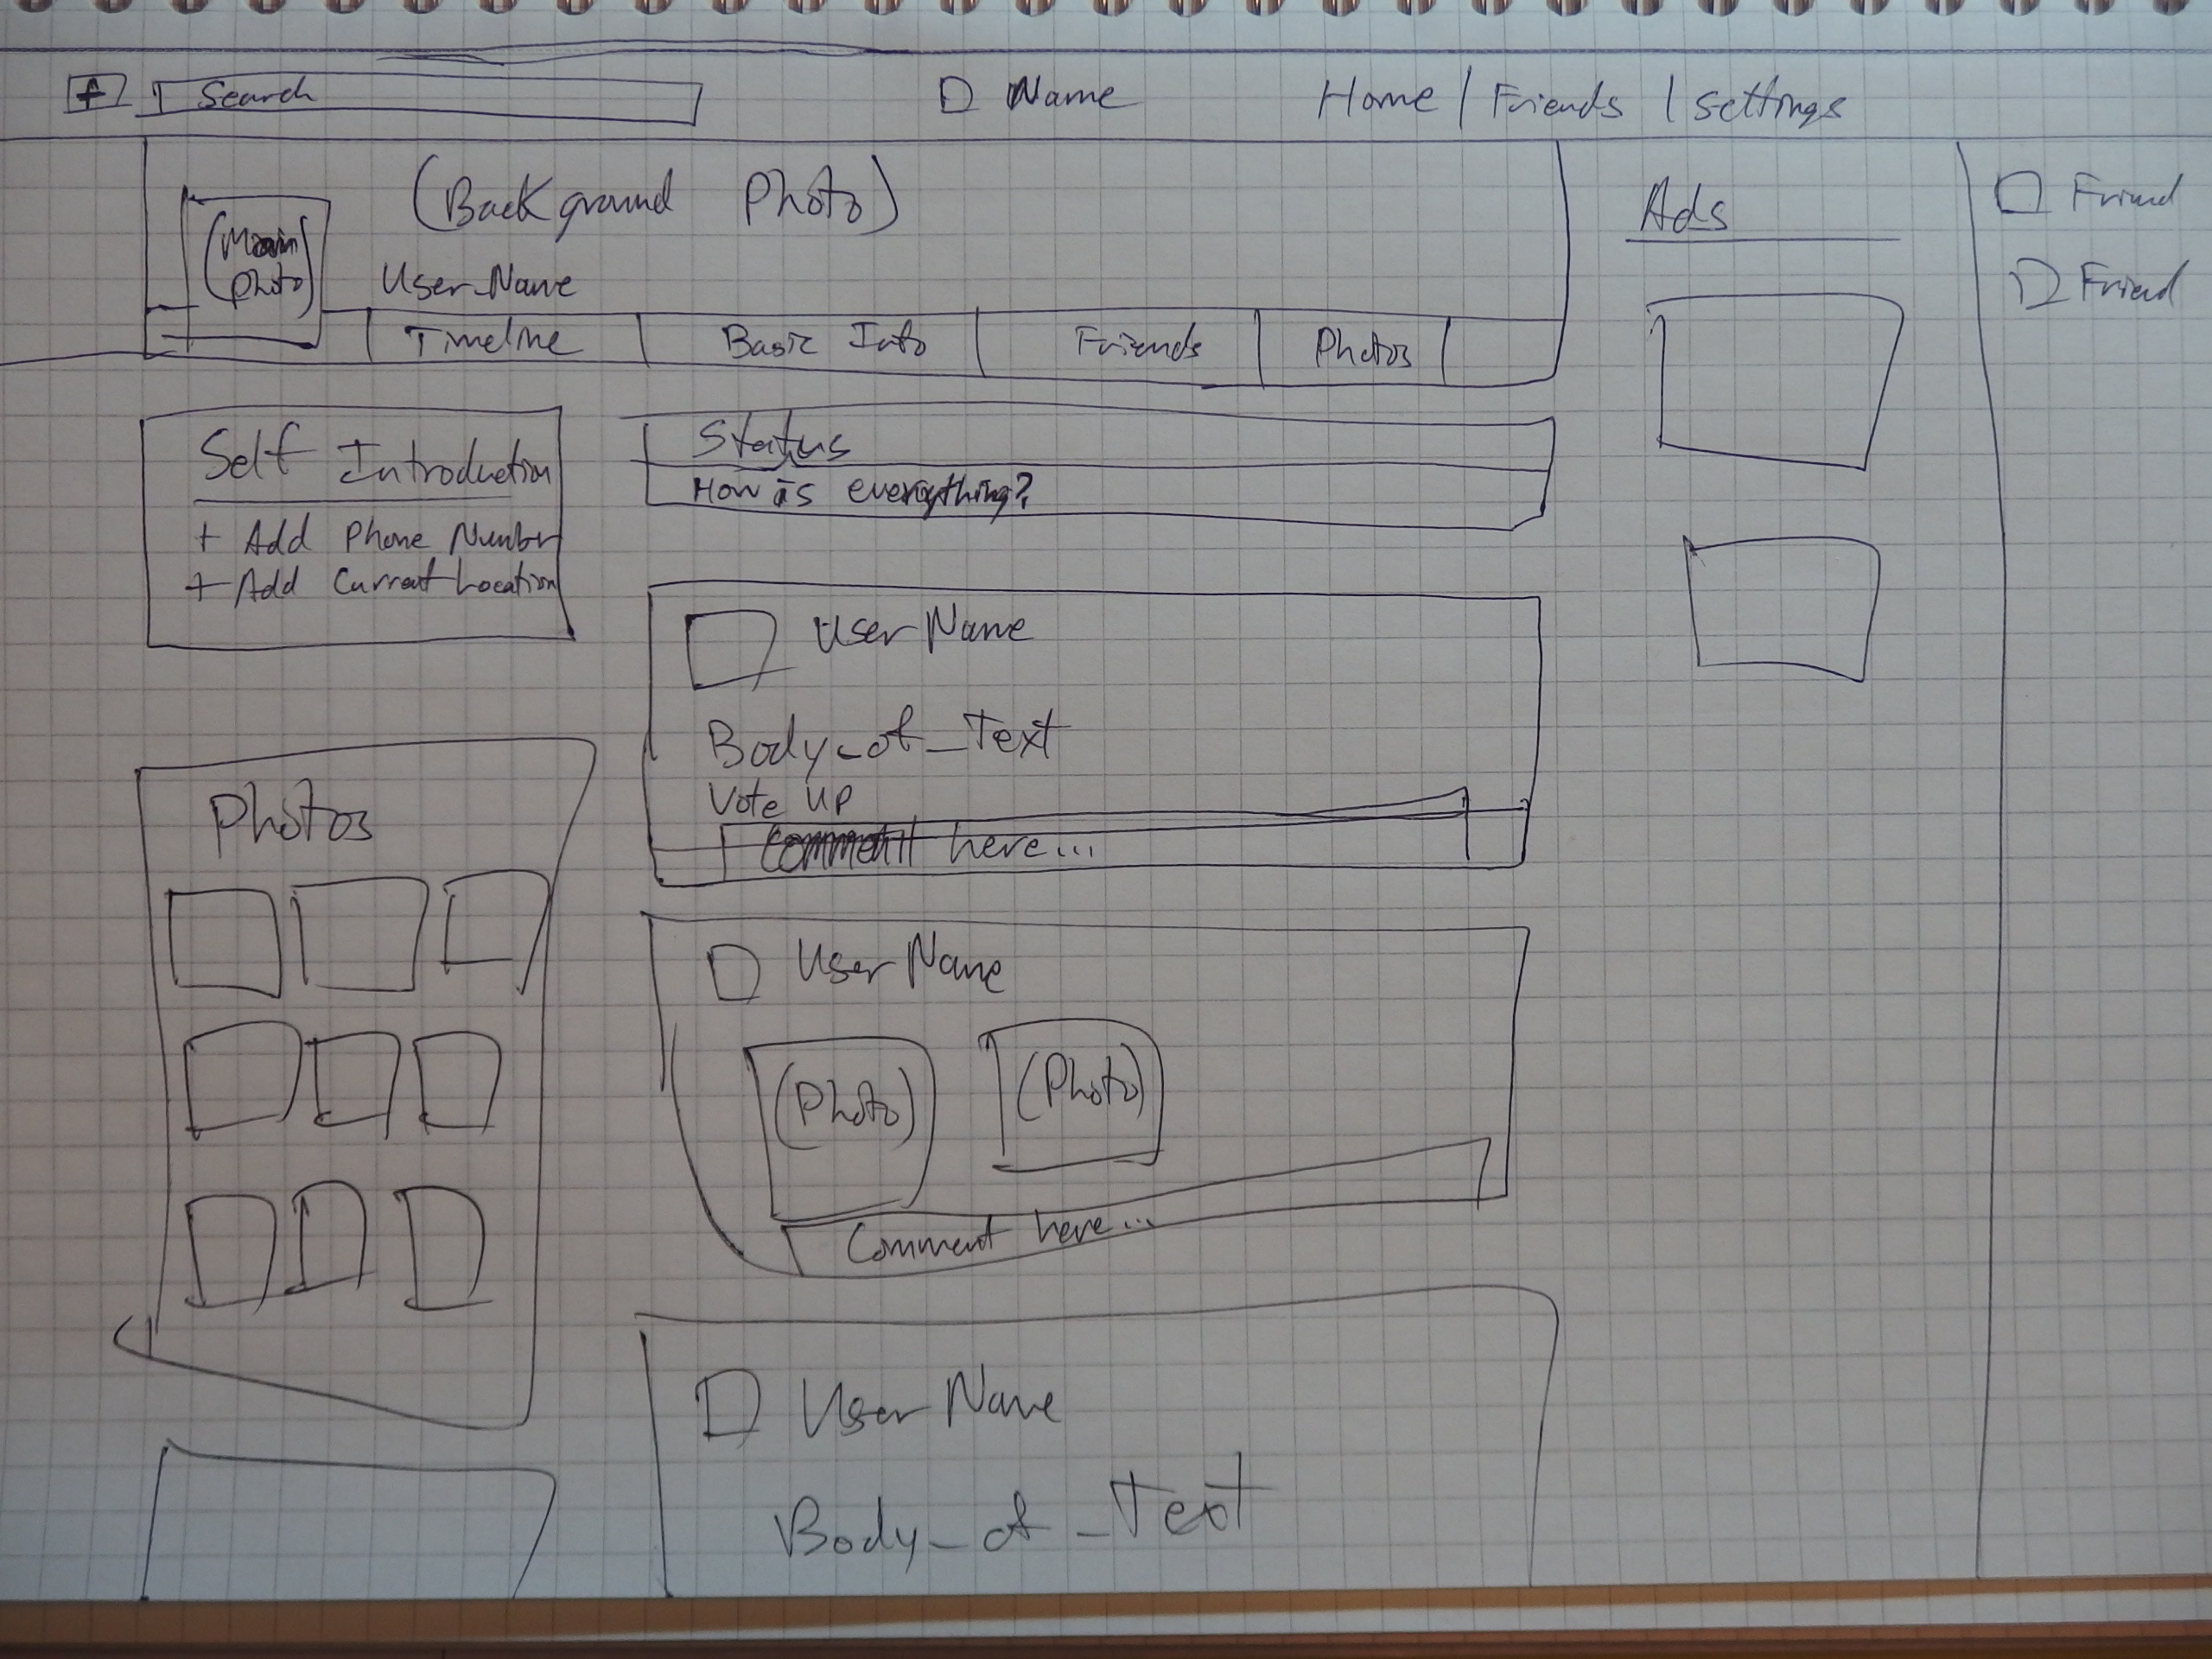 Search
Name
Home | Friends | Settings
(Background Photo)
(Main
Photo)
User_Name
Timeline
Basic Info
Friends
Photos
Ads
Friend
Friend
Self Introduction
+ Add Phone Number
+ Add Current Location
Status
How is everything?
User Name
Body_of_Text
Vote UP
Comment here...
Photos
User Name
(Photo)
(Photo)
Comment here...
User Name
Body_of_Text